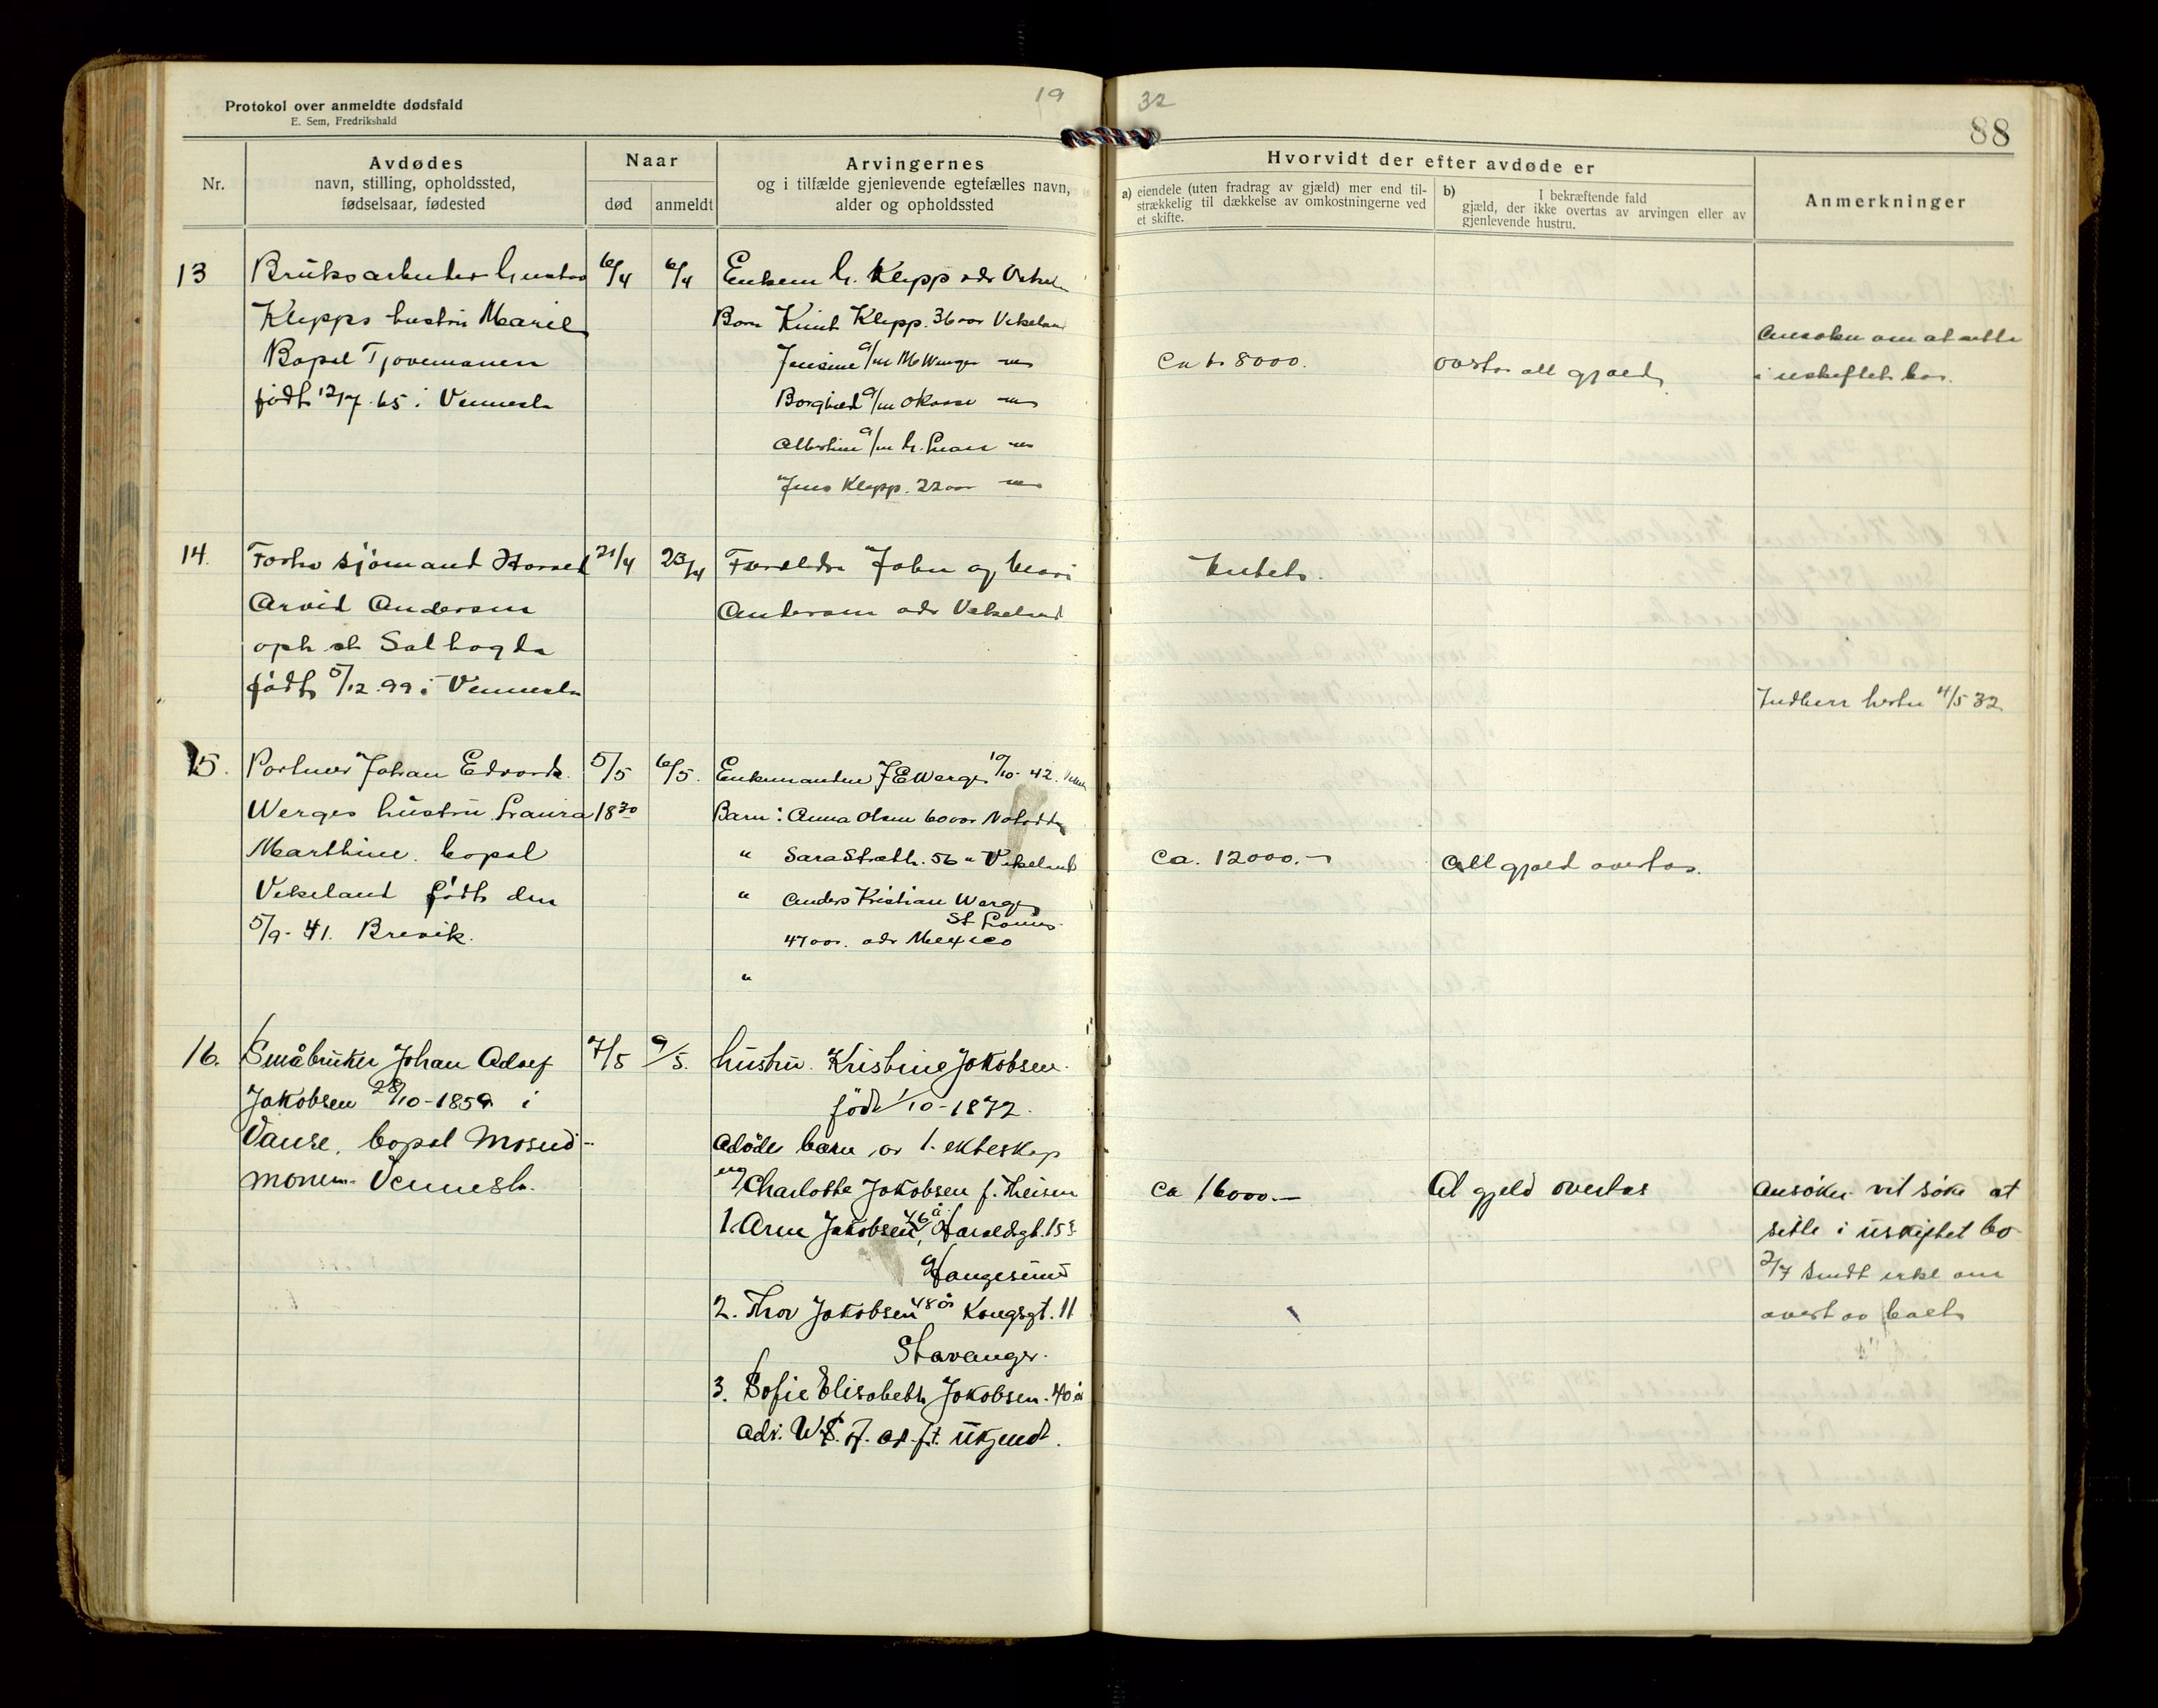 Protokol over anmeldte dødsfald
E. Sem, Fredrikshald
19
32
88
Nr.
Avdødes
navn, stilling, opholdssted,
fødselsaar, fødested
Naar
død
anmeldt
Arvingernes
og i tilfælde gjenlevende egtefælles navn,
alder og opholdssted
Hvorvidt der efter avdøde er
a) eiendele (uten fradrag av gjæld) mer end til-
strækkelig til dækkelse av omkostningerne ved
et skifte.
b) I bekræftende fald
gjæld, der ikke overtas av arvingen eller av
gjenlevende hustru.
Anmerkninger
13
Bruksarbeider Gustav
Klepps hustru
Bopel
født 12/7 65 i Vennesla
6/4
6/4
G. Klepp adr
Barn Knut Klepp. 36 aar Vikeland
Jensine g/m
Borghild g/m
g/m G.
Jens Klepp. 22 aar
ca kr 8000.
all gjæld
Ansøker om at sitte
i uskiftet bo.
14.
sjømand
Arvid Andersen
oph st
født 5/12 99 i Vennesla
21/4
23/4
Foreldre John og
Andersen adr Vikeland
Intet.
4/5 32
15.
Johan Edvard
Werges hustru Laura
Marthine. bopel
Vikeland født den
5/9 - 41. Brevik.
5/5
18 30
6/5.
Enkemanden J E Werge 10/10 - 42.
Barn: Anna Olsen 60 aar
" Sara 56 " Vikeland
" Anders Kristian Werge
St Louis
47 aar. adr Mexico
"
ca. 12000.-
All gjæld overtas.
16.
Småbruker Johan Adolf
Jakobsen 28/10 - 1859 i
Vanse, bopel Mosed-
monen Vennesla.
7/5
9/5.
hustru Kristine Jakobsen
født 1/10 - 1872.
Adøde barn av 1. ekteskap
m/ Charlotte Jakobsen f. Theisen
1. Arne Jakobsen, 46 å Haraldsgt. 153
Haugesund
2. Thor Jakobsen 48 år Kongsgt. 11
Stavanger.
3. Sofie Elisabeth Jakobsen. 40 år
adr. U.S. A. ukjendt.
ca 16000.-
Al gjeld overtas
Ansøker vil søke at
sitte i uskiftet bo
2/7 sendt erkl om
overtas boet